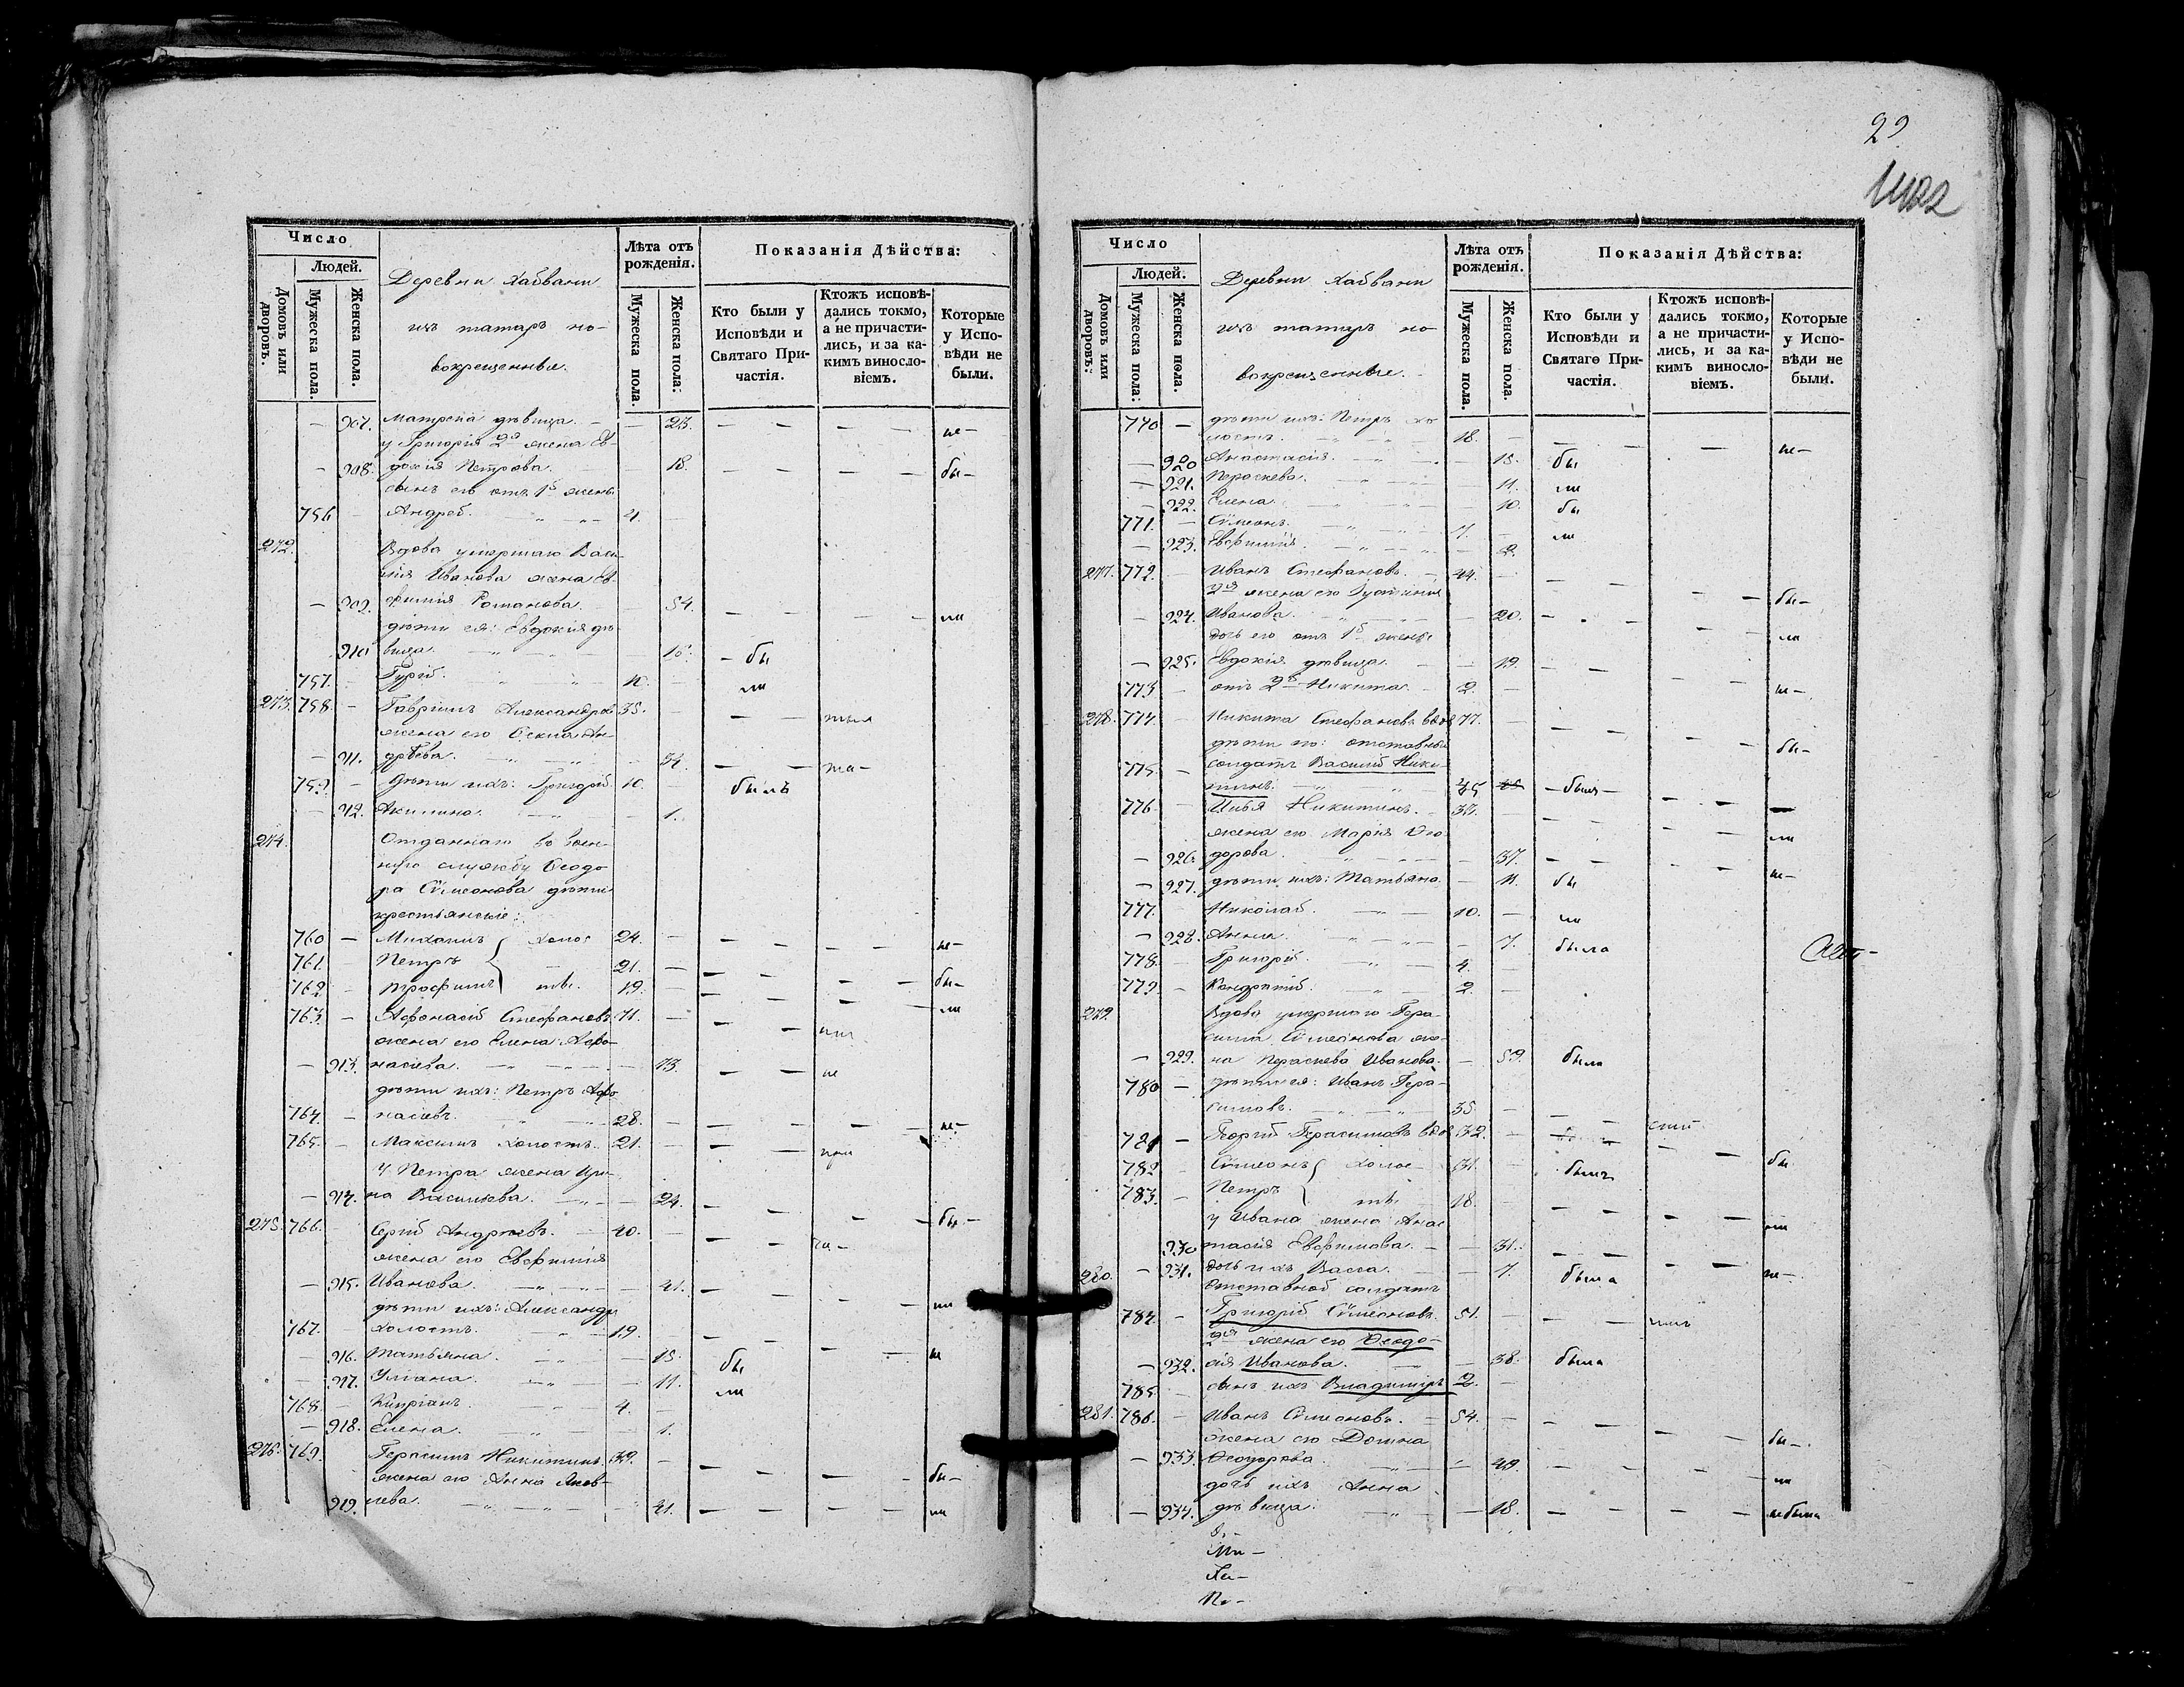 29.
1422
Число
Людей.
Домовъ или дворовъ.
Мужеска пола.
Женска пола.
Деревни Хабвани
изъ татаръ но-
вокрещенныя.
Лѣта отъ рожденія.
Мужеска пола.
Женска пола.
Показанія Дѣйства:
Кто были у Исповѣди и Святаго Причастія.
Ктожъ исповѣдались токмо, а не причастились, и за какимъ винословіемъ.
Которые у Исповѣди не были.
— 907. Матрена дѣвица. — — 23. не—
у Григорія 2я жена Ев-
— 908. докія Петрова. — 18. бы—
сынъ его отъ 1й жены
756 — Андрей. 4. —
272. Вдова умершаго Васи-
лія Иванова жена Ев-
— 909. фимія Романова. 54. ли
дѣти ея: Евдокія дѣ-
910 вица. 16. бы
757. — Гурій. 10. — ли
273. 758. — Гавріилъ Александровъ 35. —
жена его Ѳекла Ан-
— 911. дрѣева. 34.
759 — дѣти ихъ: Григорій 10. — былъ
— 912. Акилина. — 1.
274. Отданнаго во воен-
ную службу Ѳеодо-
ра Сѵмеонова дѣти
крестьянскіе:
760 — Михаилъ холос 24. — не—
761. — Петръ 21. —
762 — Трофимъ ты. 19. — бы—
763. — Афонасій Стефановъ 71. — ли
жена его Елена Афо-
— 913. насіева. 73. не
дѣти ихъ: Петръ Афо
764. — насіевъ. 28. не—
765. — Максимъ холостъ. 21. — при
У Петра жена Ири-
— 914. на Васильева. — 24. бы—
275. 766. Сергій Андреевъ. 40. —
жена его Евфимія
— 915. Иванова. 41. ли
дѣти ихъ: Александръ
767. — холостъ. 19.
— 916. Татьяна. — 15. бы не
— 917. Уліана. — 11. ли
768. — Кипріанъ. 4. —
— 918. Елена. — 1.
276. 769. Герасимъ Никитинъ. 39. — бы—
жена его Анна Яков-
919. лева. 41. ли
Число
Людей.
Домовъ или дворовъ.
Мужеска пола.
Женска пола.
Деревни Хабвани
изъ татаръ но-
вокрещенные.
Лѣта отъ рожденія.
Мужеска пола.
Женска пола.
Показанія Дѣйства:
Кто были у Исповѣди и Святаго Причастія.
Ктожъ исповѣдались токмо, а не причастились, и за какимъ винословіемъ.
Которые у Исповѣди не были.
770 — дѣти ихъ: Петръ хо-
лостъ. 18. — не—
— 920 Анастасія. — 15. бы
— 921. Пераскева. — 11. ли
— 922. Елена. — 10. бы
771. — Сѵмеонъ. 7. — ли
— 923. Евфимія. — 2.
277. 772. Иванъ Стефановъ. 44. — бы—
2я жена его Іустинія
— 924. Иванова. — 20. ли
дочь его отъ 1й жены
— 925. Евдокія дѣвица. — 19.
773 — отъ 2й Никита. 2. — не—
278. 774. — Никита Стефановъ вдов 77. — бы—
дѣти его: отставный
775. — солдатъ Василій Ники-
тинъ. 45 —былъ—
776 — Илья Никитинъ. 38. — ли
жена его Марія Ѳео-
— 926. дорова. — 37. не—
— 927. дѣти ихъ: Татьяна. — 11. бы
777. — Николай. 10. — ли
— 928. Анна. — 7. была
778. — Григорій. 4. —
779. — Кондратій. 2. —
279. Вдова умершаго Гера-
сима Сѵмеонова же-
— 929. на Пераскева Иванова. — 59. была
780 — дѣти ея: Иванъ Гера-
симовъ. 35 —
781 — Георгій Герасимовъ вдов 32. — бы
782 — Сѵмеонъ холос- 31. — былъ
783. — Петръ ты. 18. — ли
у Ивана жена Анас
930 тасія Евфимова. — 31. не—
— 931. дочь ихъ Васса. — 7. была
280. Отставной солдатъ
784. — Григорій Сѵмеоновъ. 51. —
2я жена его Ѳеодо-
— 932. сія Иванова. — 38. была
785. — сынъ ихъ Владимиръ 2. —
281. 786. — Иванъ Сѵмеоновъ. 54. — бы—
жена его Домна
— 933. Ѳеодорова. — 49. ли
дочь ихъ Анна
— 934. дѣвица. — 18. не была